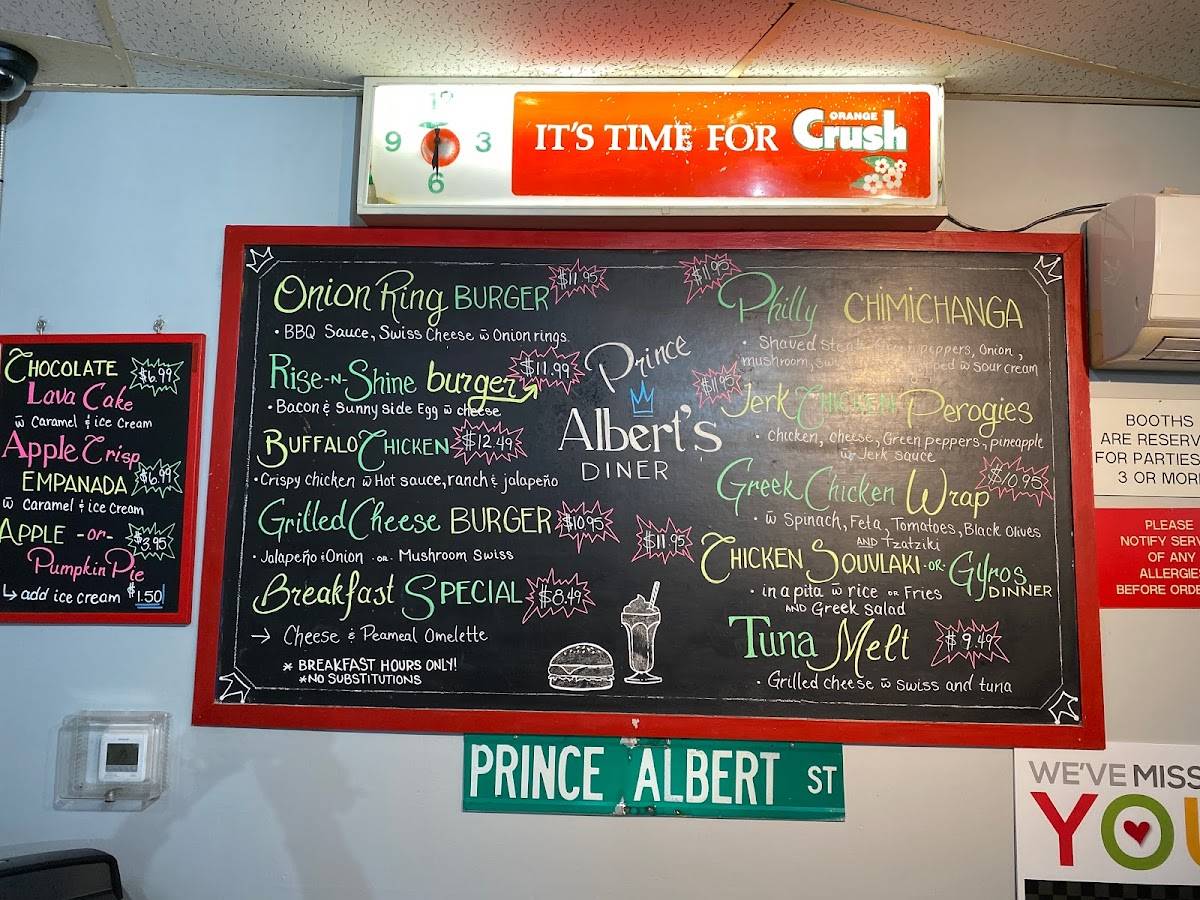 12
9 3
6
IT'S TIME FOR ORANGE Crush
CHOCOLATE $6.99
Lava Cake
w̄ Caramel & ice cream
Apple Crisp
EMPANADA $6.99
w̄ Caramel & ice cream
APPLE -or- $3.95
Pumpkin Pie
↳ add ice cream $1.50
Onion Ring BURGER $11.95
• BBQ Sauce, Swiss Cheese w̄ Onion rings
Rise-N-Shine burger $11.99
• Bacon & Sunny side Egg w̄ cheese
BUFFALO CHICKEN $12.49
• Crispy chicken w̄ Hot sauce, ranch & jalapeño
Grilled Cheese BURGER $10.95
• Jalapeño & Onion .OR. Mushroom Swiss
Breakfast SPECIAL $8.49
→ Cheese & Peameal Omelette
* BREAKFAST HOURS ONLY!
* NO SUBSTITUTIONS
Prince
Albert's
DINER
$11.95
Philly CHIMICHANGA
• Shaved steak, peppers, Onion,
mushroom, w̄ sour cream
$11.95
Jerk CHICKEN Perogies
• chicken, cheese, Green peppers, pineapple
w̄ Jerk sauce
Greek Chicken Wrap $10.95
• w̄ Spinach, Feta, Tomatoes, Black Olives
AND Tzatziki
$11.95
CHICKEN SOUVLAKI -OR- Gyros
DINNER
• in a pita w̄ rice OR Fries
AND Greek salad
Tuna Melt $9.49
• Grilled cheese w̄ swiss and tuna
PRINCE ALBERT ST
BOOTHS
ARE RESERV
FOR PARTIES
3 OR MOR
PLEASE
NOTIFY SERV
OF ANY
ALLERGIE
BEFORE ORDE
WE'VE MISS
YOU